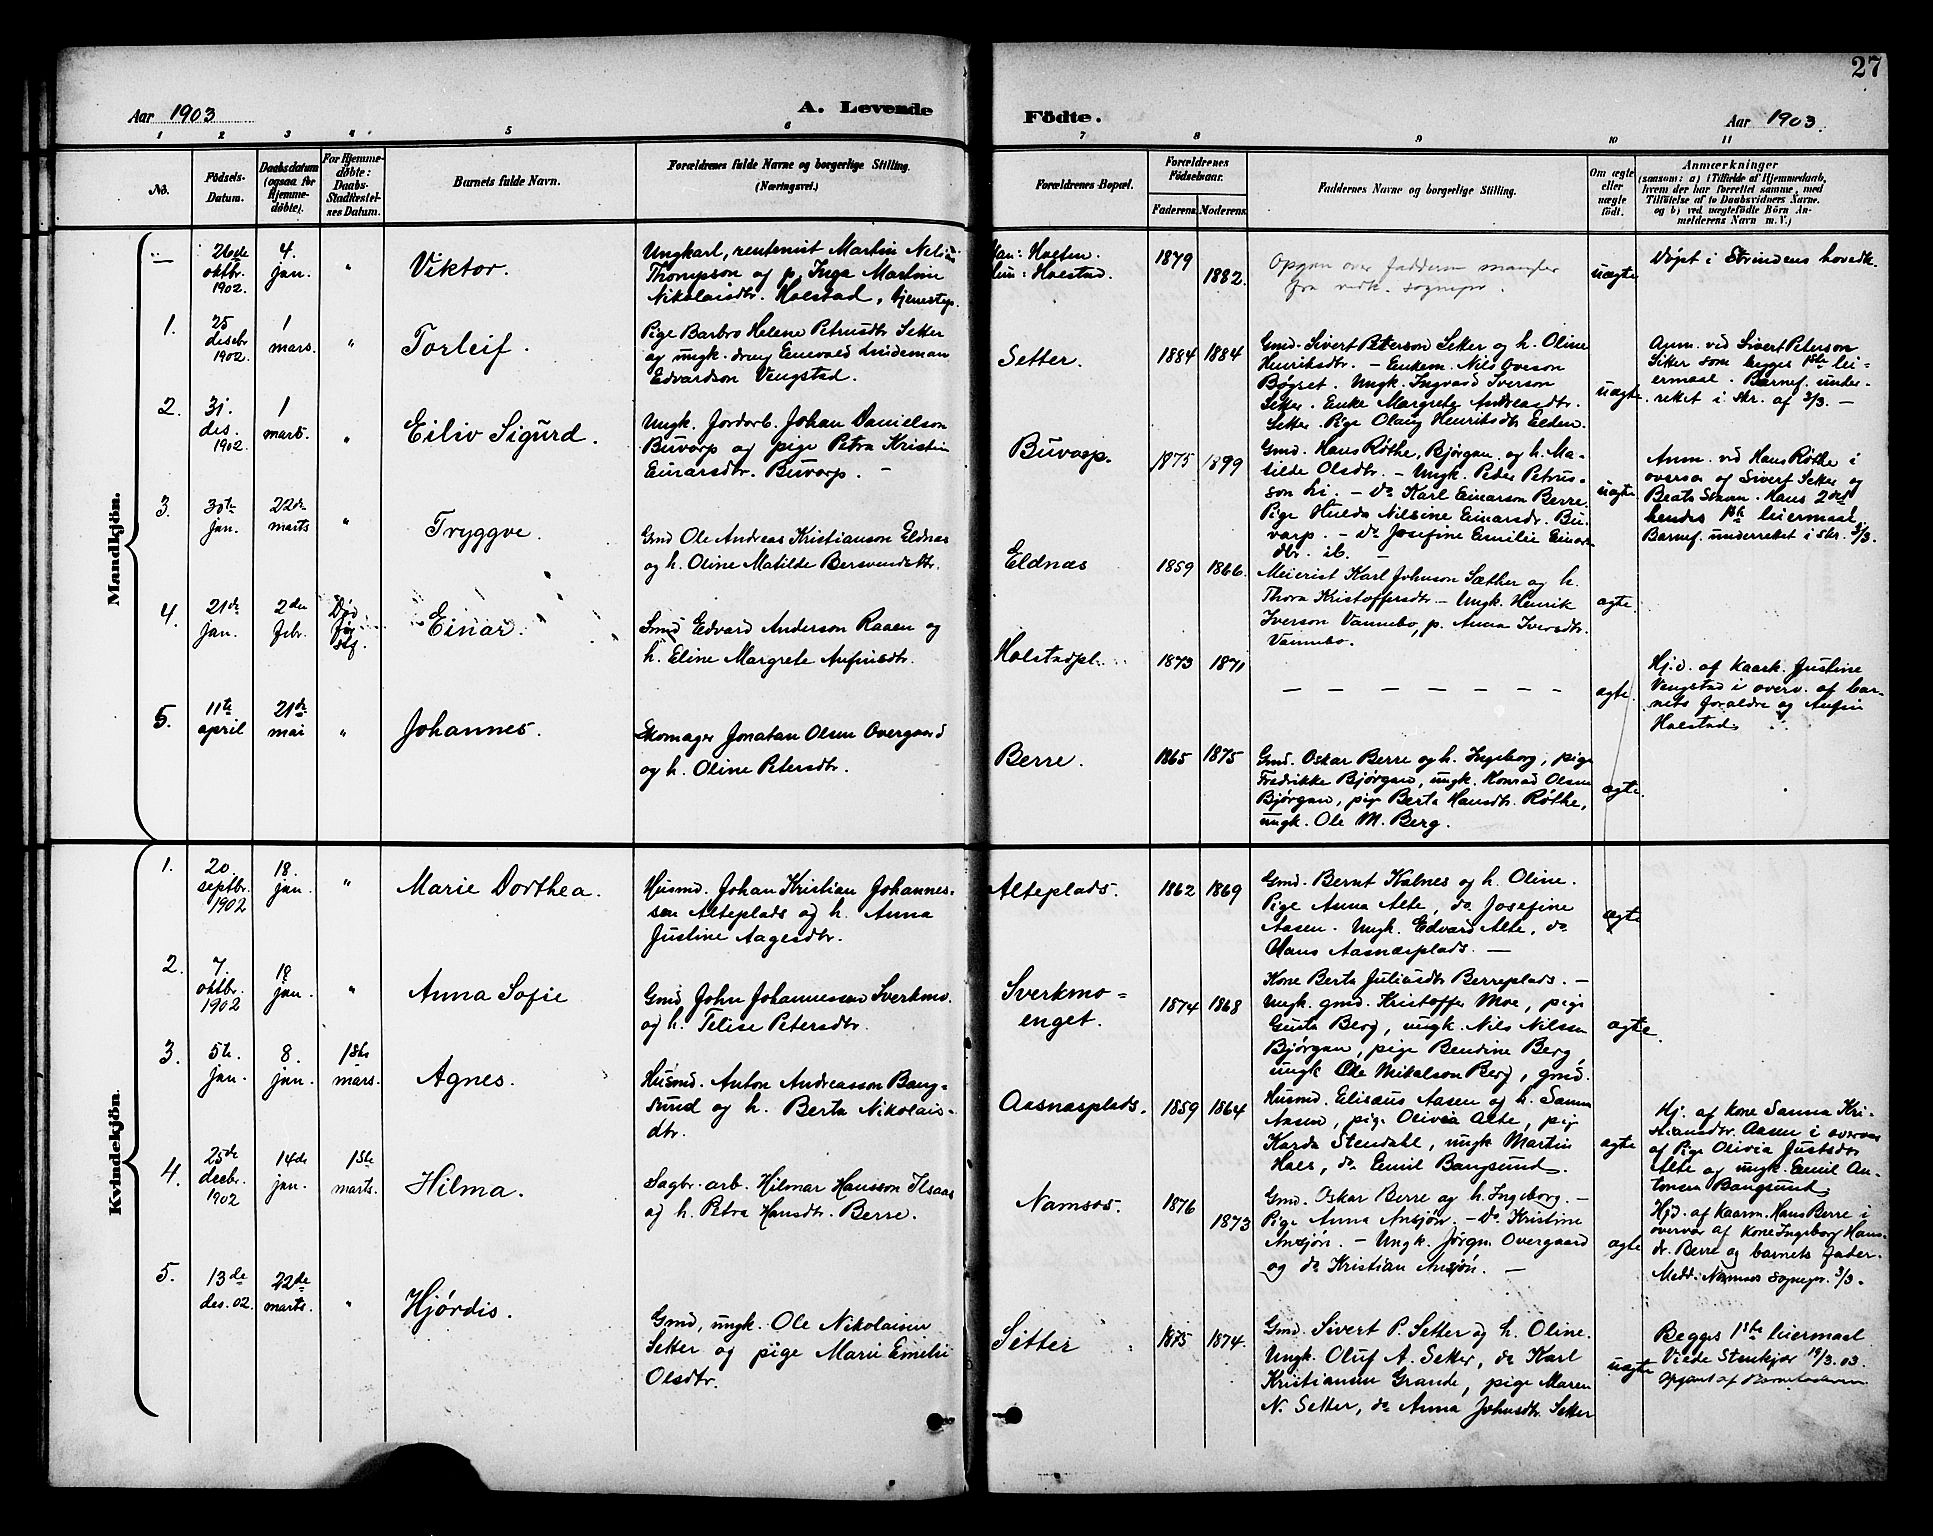 27
Aar 1903
A. Levende
Födte.
Aar 1903.
1 2 3 4 5 6 7 8 9 10 11
No.
Födsels-
Datum.
Daabsdatum
(ogsaa for
Hjemme-
døbte).
For Hjemme-
døbte:
Daabs-
Stadfæstel-
ses Datum.
Barnets fulde Navn.
Forældrenes fulde Navne og borgerlige Stilling.
(Næringsvei.)
Forældrenes Bopæl.
Forældrenes
Födselsaar.
Faderens. Moderens.
Faddernes Navne og borgerlige Stilling.
Om ægte
eller
uægte
født.
Anmærkninger
(saasom: a) i Tilfælde af Hjemmedaab,
hvem der har forrettet samme, med
Tilføielse af to Daabsvidners Navne.
og b) ved uægtefødte Börn An-
melderens Navn m. V.)
Mandkjön.
—
26de
oktbr.
1902.
4.
jan.
"
Viktor.
Ungkarl, rentenist Martin Neli
Thompson og p. Inga Martine
Nikolaisdtr. Holstad, tjenestep.
Han: Holten.
Hun: Holstad.
1879
1882.
Opgav over faddern mangler
fra vedk. sognepr.
uægte
Døpt i Strindens hovedk.
1.
25
desebr
1902.
1
mars.
"
Torleif.
Pige Barbro Helene Petrusdtr Setter
og ungk. dreng Einevald Lindeman
Edvardson Vengstad.
Setter.
1884 1884
Gmd. Sivert Peterson Setter og h. Oline
Henriksdtr. — Enkem. Nils Ovesson
Bøgset. Ungk. Ingvard Iverson
Setter. Enke Margrete Andreasdtr.
Setter. Pige Olaug Henriksdtr Elden.
uægte
Anm. ved Sivert Peterson
Setter som begges 1ste lei-
ermaal. Barnef. under-
rettet i skr. af 3/3. —
2.
31.
des.
1902.
1
marts.
"
Eiliv Sigurd.
Ungk. Jordarb. Johan Danielson
Buvarp og pige Petra Kristin
Einarsdtr. Buvarp. —
Buvarp.
1875 1899
Gmd. Hans Røthe, Bjørgan og h. Ma-
tilde Olsdtr. — Ungk. Peder Petrus-
son Li. — do Karl Einarson Berre.
Pige Hulda Nilsine Einarsdr. Bu-
varp. — do Josefine Emilie Einars-
dtr. ib. —
uægte
Anm. ved Hans Røthe i
overvær af Sivert Setter og
Beate Stavn. Hans 2det
hendes 1ste leiermaal.
Barnef. underrettet i skr. 3/3.
3.
30te
jan.
22de
marts
"
Tryggve.
Gmd Ole Andreas Kristianson Eldnæs
og h. Oline Matilde Bersvendsdtr.
Eldnæs
1859 1866.
Meierist Karl Johnson Sæther og h.
Thora Kristoffersdtr. — Ungk. Henrik
Iverson Vannebo, p. Anna Iversdtr.
Vannebo.
ægte
4.
21de
jan.
2den
febr.
Død
før
stf.
Einar.
Smed Edvard Anderson Raaen og
h. Eline Margrete Anfinsdtr.
Holstadpl.
1873 1871
— — — — — — —
ægte.
Hj.d. af kaark. Justine
Vengstad i overv. af bar-
nets forældre og Anfin
Holstad.
5.
11te
april
21de
mai
"
Johannes.
Skomager Jonatan Olsen Overgaard
og h. Oline Petersdtr.
Berre.
1865 1875
Gmd. Oskar Berre og h. Ingeborg, pige
Fredrikke Bjørgan, ungk. Konrad Olsen
Bjørgan, pige Berta Hansdtr. Røthe,
ungk. Ole M. Berg.
ægte.
Kvindekjön.
1.
20.
septbr.
1902
18.
jan.
"
Marie Dorthea.
Husmd. Johan Kristian Johannes-
sen Alteplads og h. Anna
Justine Aagesdtr.
Alteplads.
1862 1869
Gmd. Bernt Kalnes og h. Oline.
Pige Anna Alte, do Josefine
Aasen. Ungk. Edvard Alte, do
Hans Aasnæsplads. —
ægte
2.
7.
oktbr.
1902
18
jan.
"
Anna Sofie
Gmd John Johannessen Sverkmo.
og h. Telise Petersdtr.
Sverkmo-
enget.
1874 1868
Kone Berta Juliusdtr Berreplads. —
Ungk. gmd. Kristoffer Moe, pige
Gusta Berg, ungk. Nils Nilssen
Bjørgan, pige Bendine Berg,
ungk Ole Mikalson Berg, gmd.
ægte.
3.
5te.
jan.
8.
jan.
1ste
mars.
Agnes.
Husmd. Anton Andreasson Bang-
sund og h. Berta Nikolais-
dtr.
Aasnæsplads.
1859 1864
Husmd. Elisæus Aasen og h. Sanna
Aasen, pige Olivia Alte, pige
Karda Stendahl, ungk Martin
Hals, do Emil Bangsund.
ægte
Hj. af kone Sanna Kri-
stiansdtr. Aasen i overvær
af Pige Olivia Justsdtr
Alte og ungk. Emil An-
tonsen Bangsund.
4.
25de
decbr.
1902
14de
jan.
1ste
marts.
Hilma.
Sagbr. arb. Hilmar Hansson Ilsaas
og h. Petra Hansdtr. Berre.
Namsos.
1876
1873
Gmd. Oskar Berre og h. Ingeborg. —
Pige Anna Ansjøn. — do Kristine
Ansjøn. — Ungk. Jørgn. Overgaard
og do Kristian Ansjøn. —
ægte
Hjd. af kaarm. Hans Berre i
overvær af kone Ingeborg Hans-
dr. Berre og barnets fader.
Medd. Namsos sognepr. 3/3.
5.
13de
des. 02.
22de
marts.
"
Hjørdis.
Gmd, ungk. Ole Nikolaisen
Setter og pige Marie Emelie
Olsdtr.
Setter
1875 1874.
Gmd. Sivert P. Setter og h. Oline.
Ungk. Oluf A. Setter, do Karl
Kristiansen Grande, pige Maren
N. Setter, do Anna Johnsdtr. Setter
uægte
Begges 1ste leiermaal
Viede Stenkjær 19/3.03.
opgivet af Barnefaderen